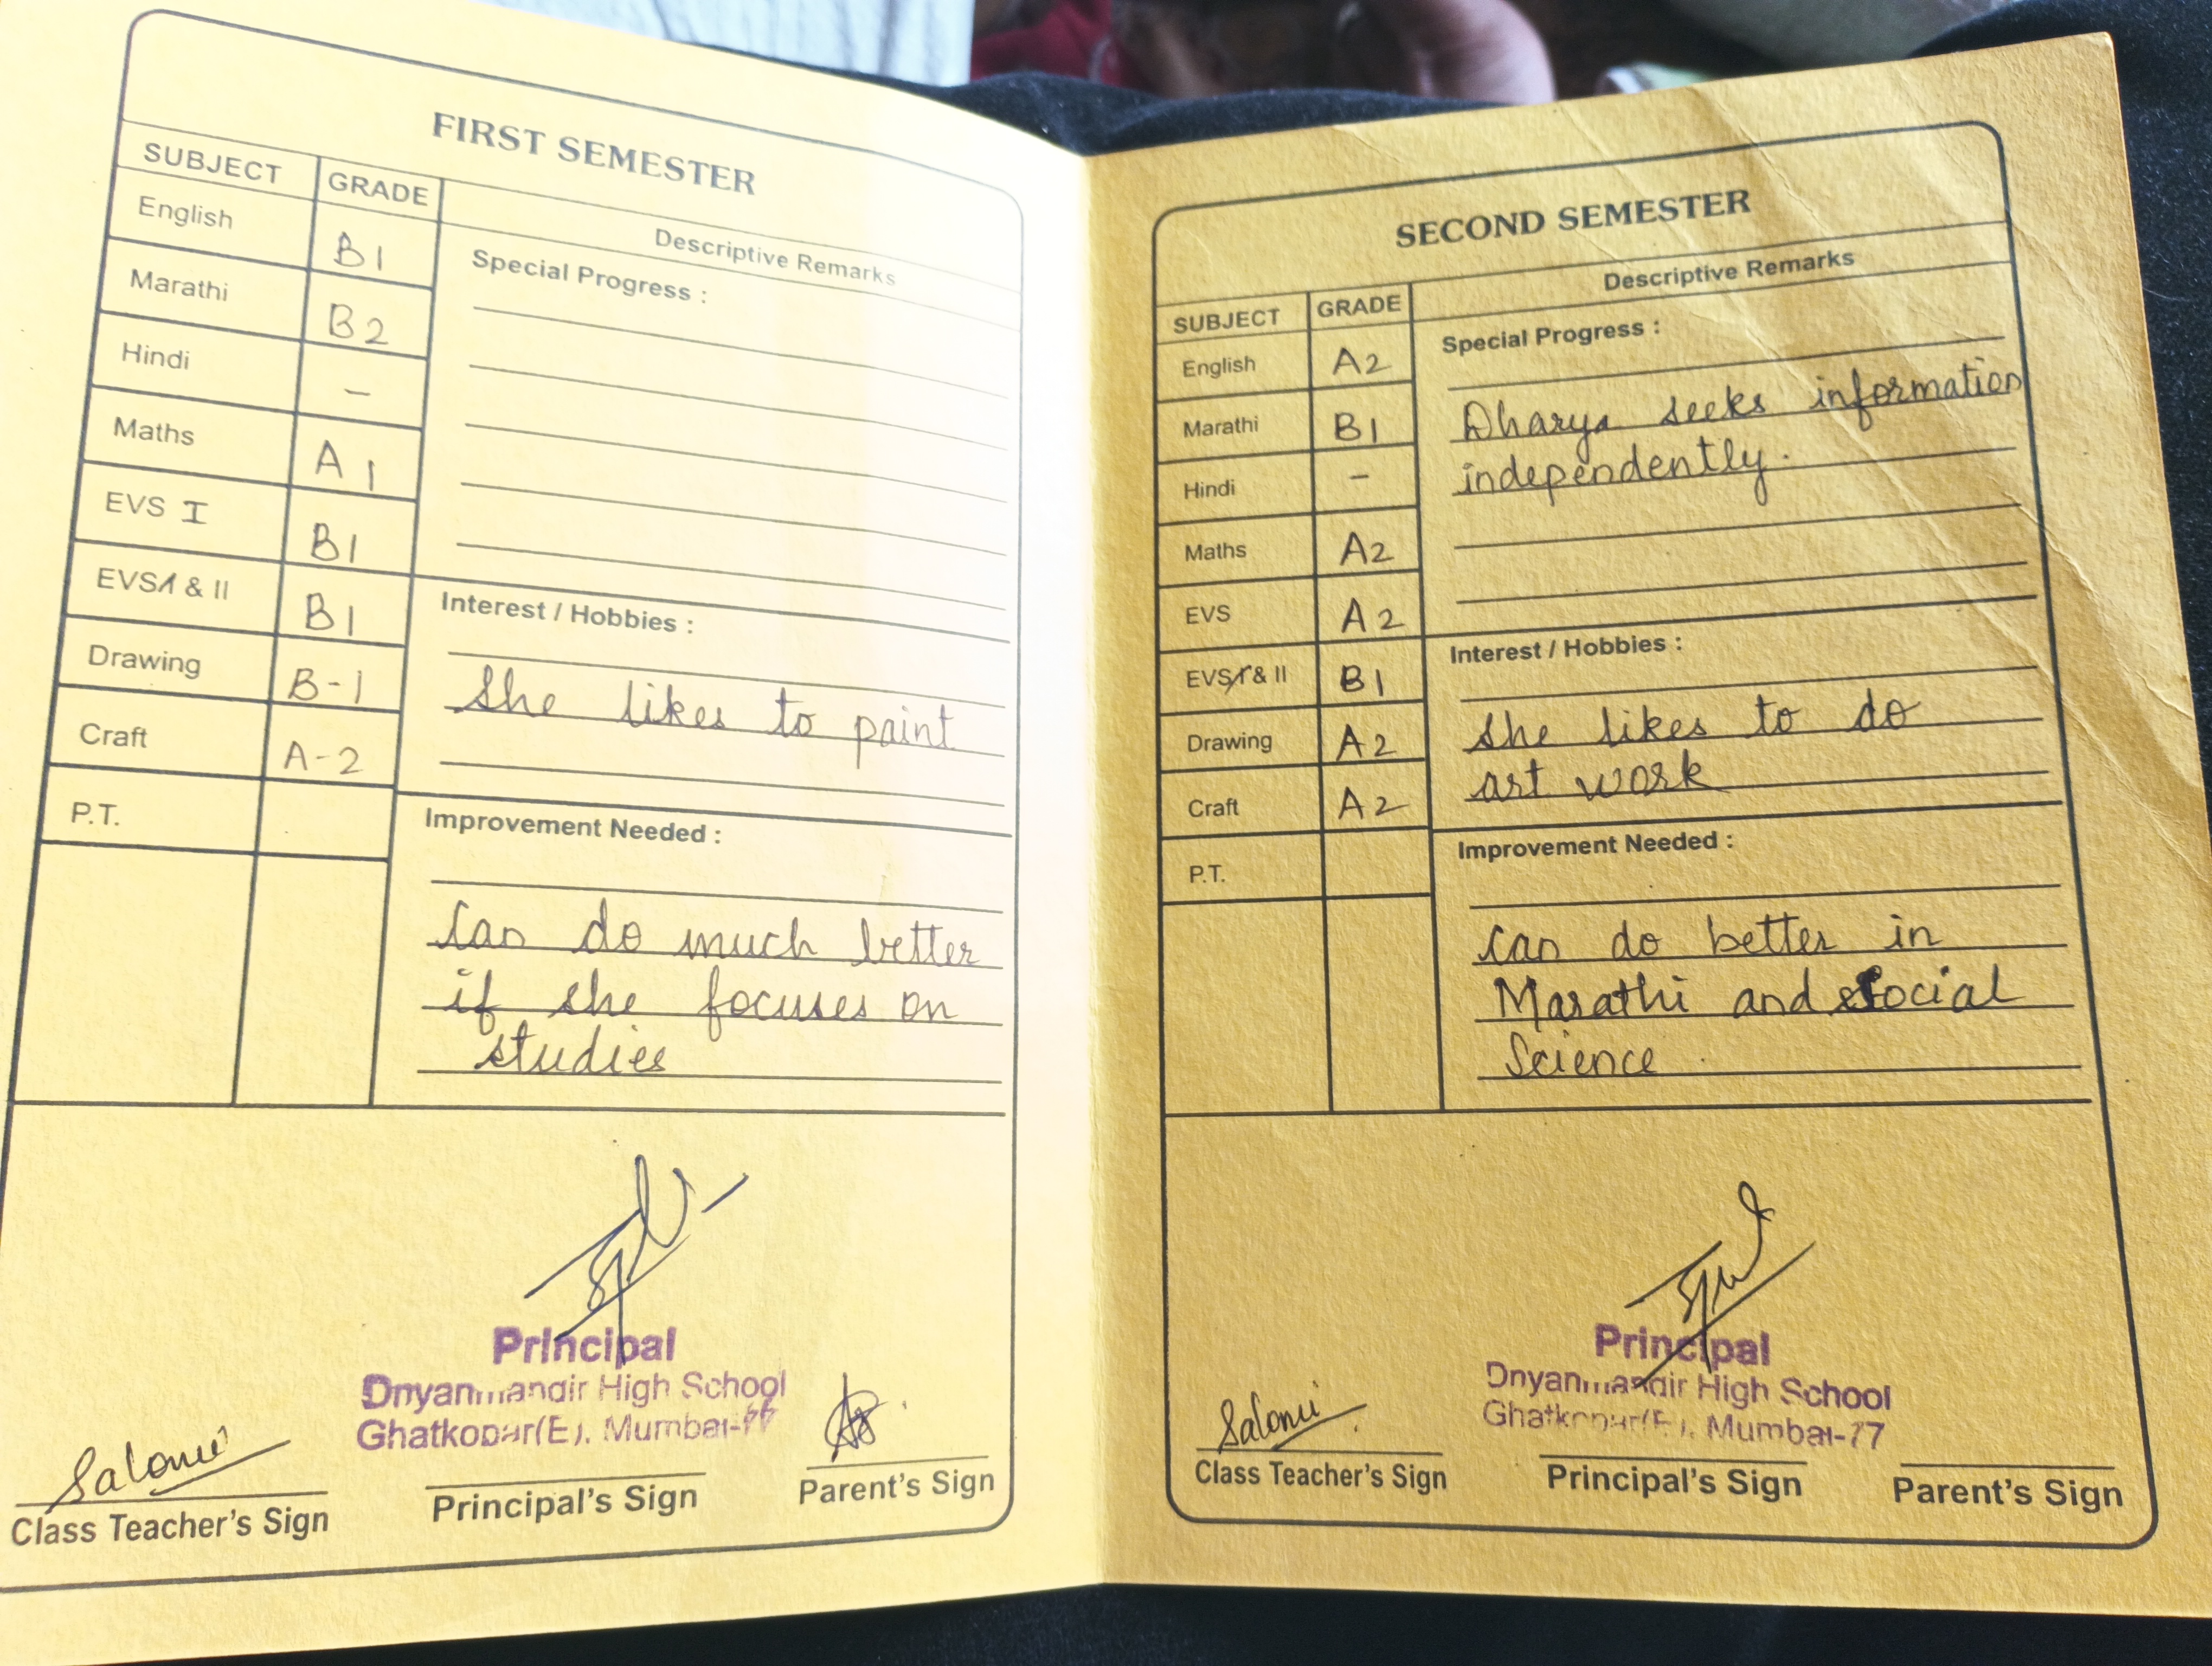 FIRST SEMESTER
SUBJECT GRADE Descriptive Remarks
English B1
Marathi B2
Hindi -
Maths A1
EVS I B1
EVS & II B1
Drawing B-1
Craft A-2
P.T.
Special Progress :
Interest / Hobbies :
She likes to paint
Improvement Needed :
Can do much better
if she focuses on
studies
Principal
Dnyanmandir High School
Ghatkopar(E), Mumbai-77
Salomi
Class Teacher's Sign
Principal's Sign
Parent's Sign
SECOND SEMESTER
SUBJECT GRADE Descriptive Remarks
English A2
Marathi B1
Hindi -
Maths A2
EVS A2
EVS & II B1
Drawing A2
Craft A2
P.T.
Special Progress :
Dharya seeks information
independently.
Interest / Hobbies :
She likes to do
art work
Improvement Needed :
Can do better in
Marathi and Social
Science
Principal
Dnyanmandir High School
Ghatkopar(E), Mumbai-77
Salomi
Class Teacher's Sign
Principal's Sign
Parent's Sign